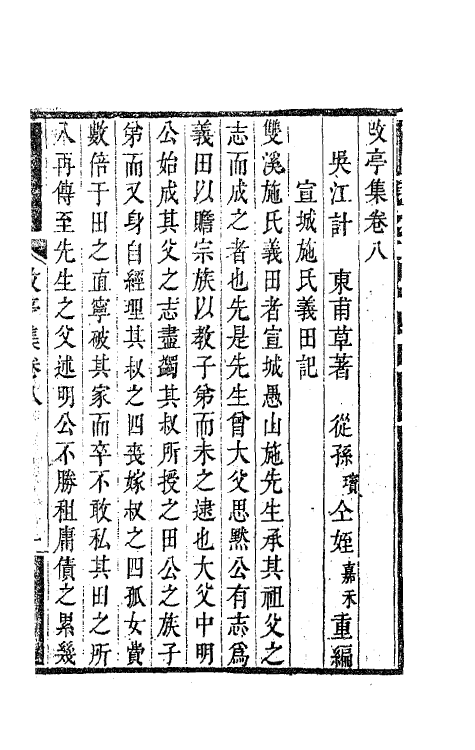 改亭集卷八
吳江計　東甫草著　從孫璸仝姪嘉禾重編
宣城施氏義田記
雙溪施氏義田者宣城愚山施先生承其祖父之
志而成之者也先是先生曾大父思默公有志爲
義田以贍宗族以教子弟而未之逮也大父中明
公始成其父之志盡蠲其叔所授之田公之族子
弟而又身自經理其叔之四喪嫁叔之四孤女費
數倍于田之直寧被其家而卒不敢私其田之所
入再傳至先生之父述明公不勝租庸債之累幾
改亭集卷八
一